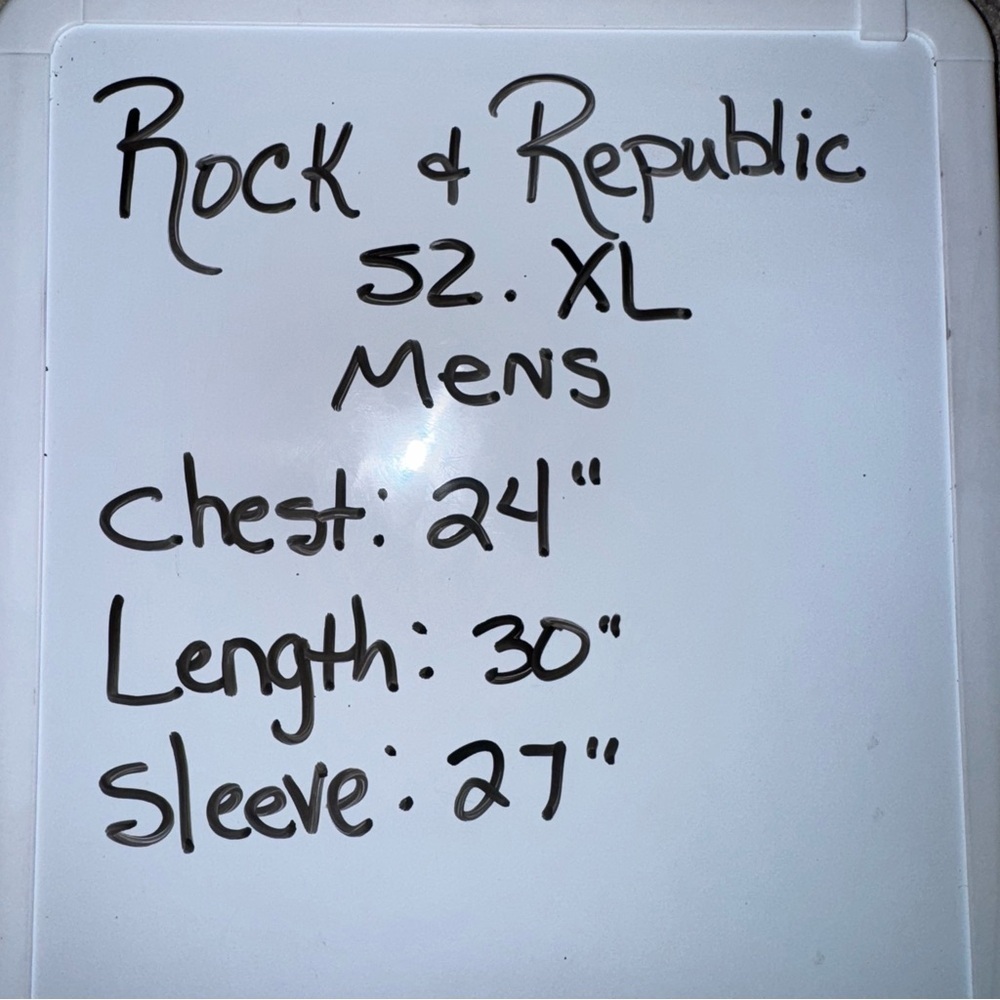 Rock & Republic
SZ. XL
Mens
Chest: 24"
Length: 30"
Sleeve: 27"